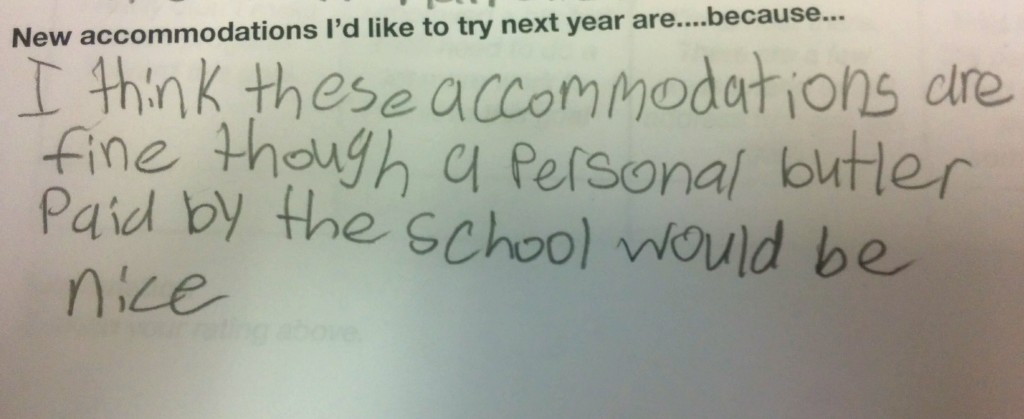 New accommodations I'd like to try next year are....because...
I think these accommodations are
fine though a Personal butler
Paid by the school would be
nice
your rating above.